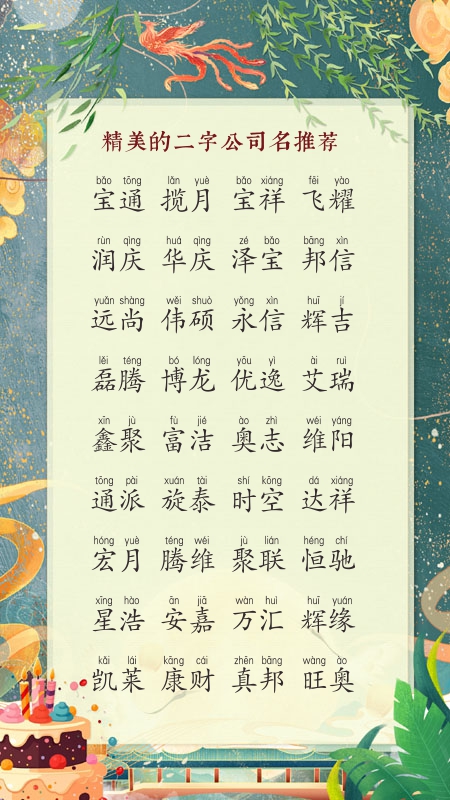 精美的二字公司名推荐
bǎo tōng lǎn yuè bǎo xiáng fēi yào
宝通 揽月 宝祥 飞耀
rùn qìng huá qìng zé bǎo bāng xìn
润庆 华庆 泽宝 邦信
yuǎn shàng wěi shuò yǒng xìn huī jí
远尚 伟硕 永信 辉吉
lěi téng bó lóng yōu yì ài ruì
磊腾 博龙 优逸 艾瑞
xīn jù fù jié ào zhì wéi yáng
鑫聚 富洁 奥志 维阳
tōng pài xuán tài shí kōng dá xiáng
通派 旋泰 时空 达祥
hóng yuè téng wéi jù lián héng chí
宏月 腾维 聚联 恒驰
xīng hào ān jiā wàn huì huī yuán
星浩 安嘉 万汇 辉缘
kǎi lái kāng cái zhēn bāng wàng ào
凯莱 康财 真邦 旺奥